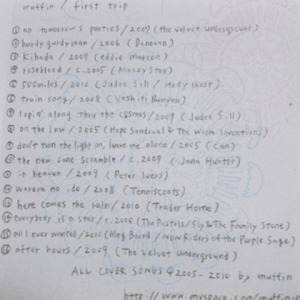 muffin / first trip
① all tomorrow's parties / 2009 (the velvet underground)
② hurdy gurdyman / 2006 (Donovan)
③ Kibada / 2009 (eddie marcon)
④ roseblood / c.2005 (Mazzy Star)
⑤ 500miles / 2010 (Judee Sill / Hedy West)
⑥ train song / 2008 (Vashti Bunyan)
⑦ lopin' along thru the cosmos / 2009 (Judee Sill)
⑧ on the low / 2005 (Hope Sandoval & The Warm Inventions)
⑨ don't turn the light on, leave me alone / 2005 (Can)
⑩ the new June scramble / c.2009 (Jana Hunter)
⑪ in heaven / 2009 (Peter Ivers)
⑫ warera no ido / 2008 (Tenniscoats)
⑬ here comes the rain / 2010 (Trader Horne)
⑭ everybody is a star / c.2005 (The Pastels / Sly & The Family Stone)
⑮ all I ever wanted / 2010 (Meg Baird / New Riders of the Purple Sage)
⑯ after hours / 2009 (The Velvet Underground)
ALL COVER SONGS @ 2005-2010 by muffin
http://www.myspace.com/